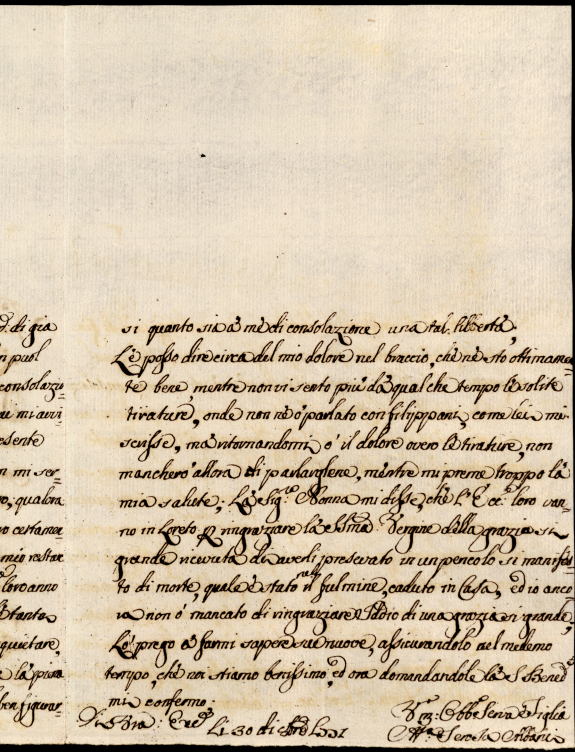 d: di gia
n puol
consolazio=
ui mi avvi
esente
n mi ser=
o, qualora
o certamen
mio restar
loro anno
e tanta
quietare,
e la pura
ben figurar=
si quanto sia à me di consolazione una tal libbertà.
Lè posso dire circa del mio dolore nel braccio, che nè sto ottimamen=
te bene, mentre non vi sento più dà qualche tempo lè solite
tirature, onde non nè ò parlato con filippani, come lei mi
scrisse, mà ritornandomi ò il dolore overo lè tirature, non
mancherò allora di parlarglene, mentre mi preme troppo là
mia salute; Là Sig.ra Nonna mi disse, chè l'Ecc.e loro van=
no in Loreto p ringraziare là SSma Vergine della grazia si
grande ricevuta di averli preservato in un pericolo si manifes=
to di morte, quale è stato nel fulmine, caduto in Casa, ed io anco
ra non ò mancato di ringraziare Iddio di una grazia si grande;
Lò prego à farmi sapere sue nuove, assicurandolo nel medemo
tempo, chè noi stiamo benissimo, ed ora domandandole là S. Bened.
mi confermo.
Di Vra: Ecc.
Li 30 di
Obb: Serva è Figlia
Ma Teresa